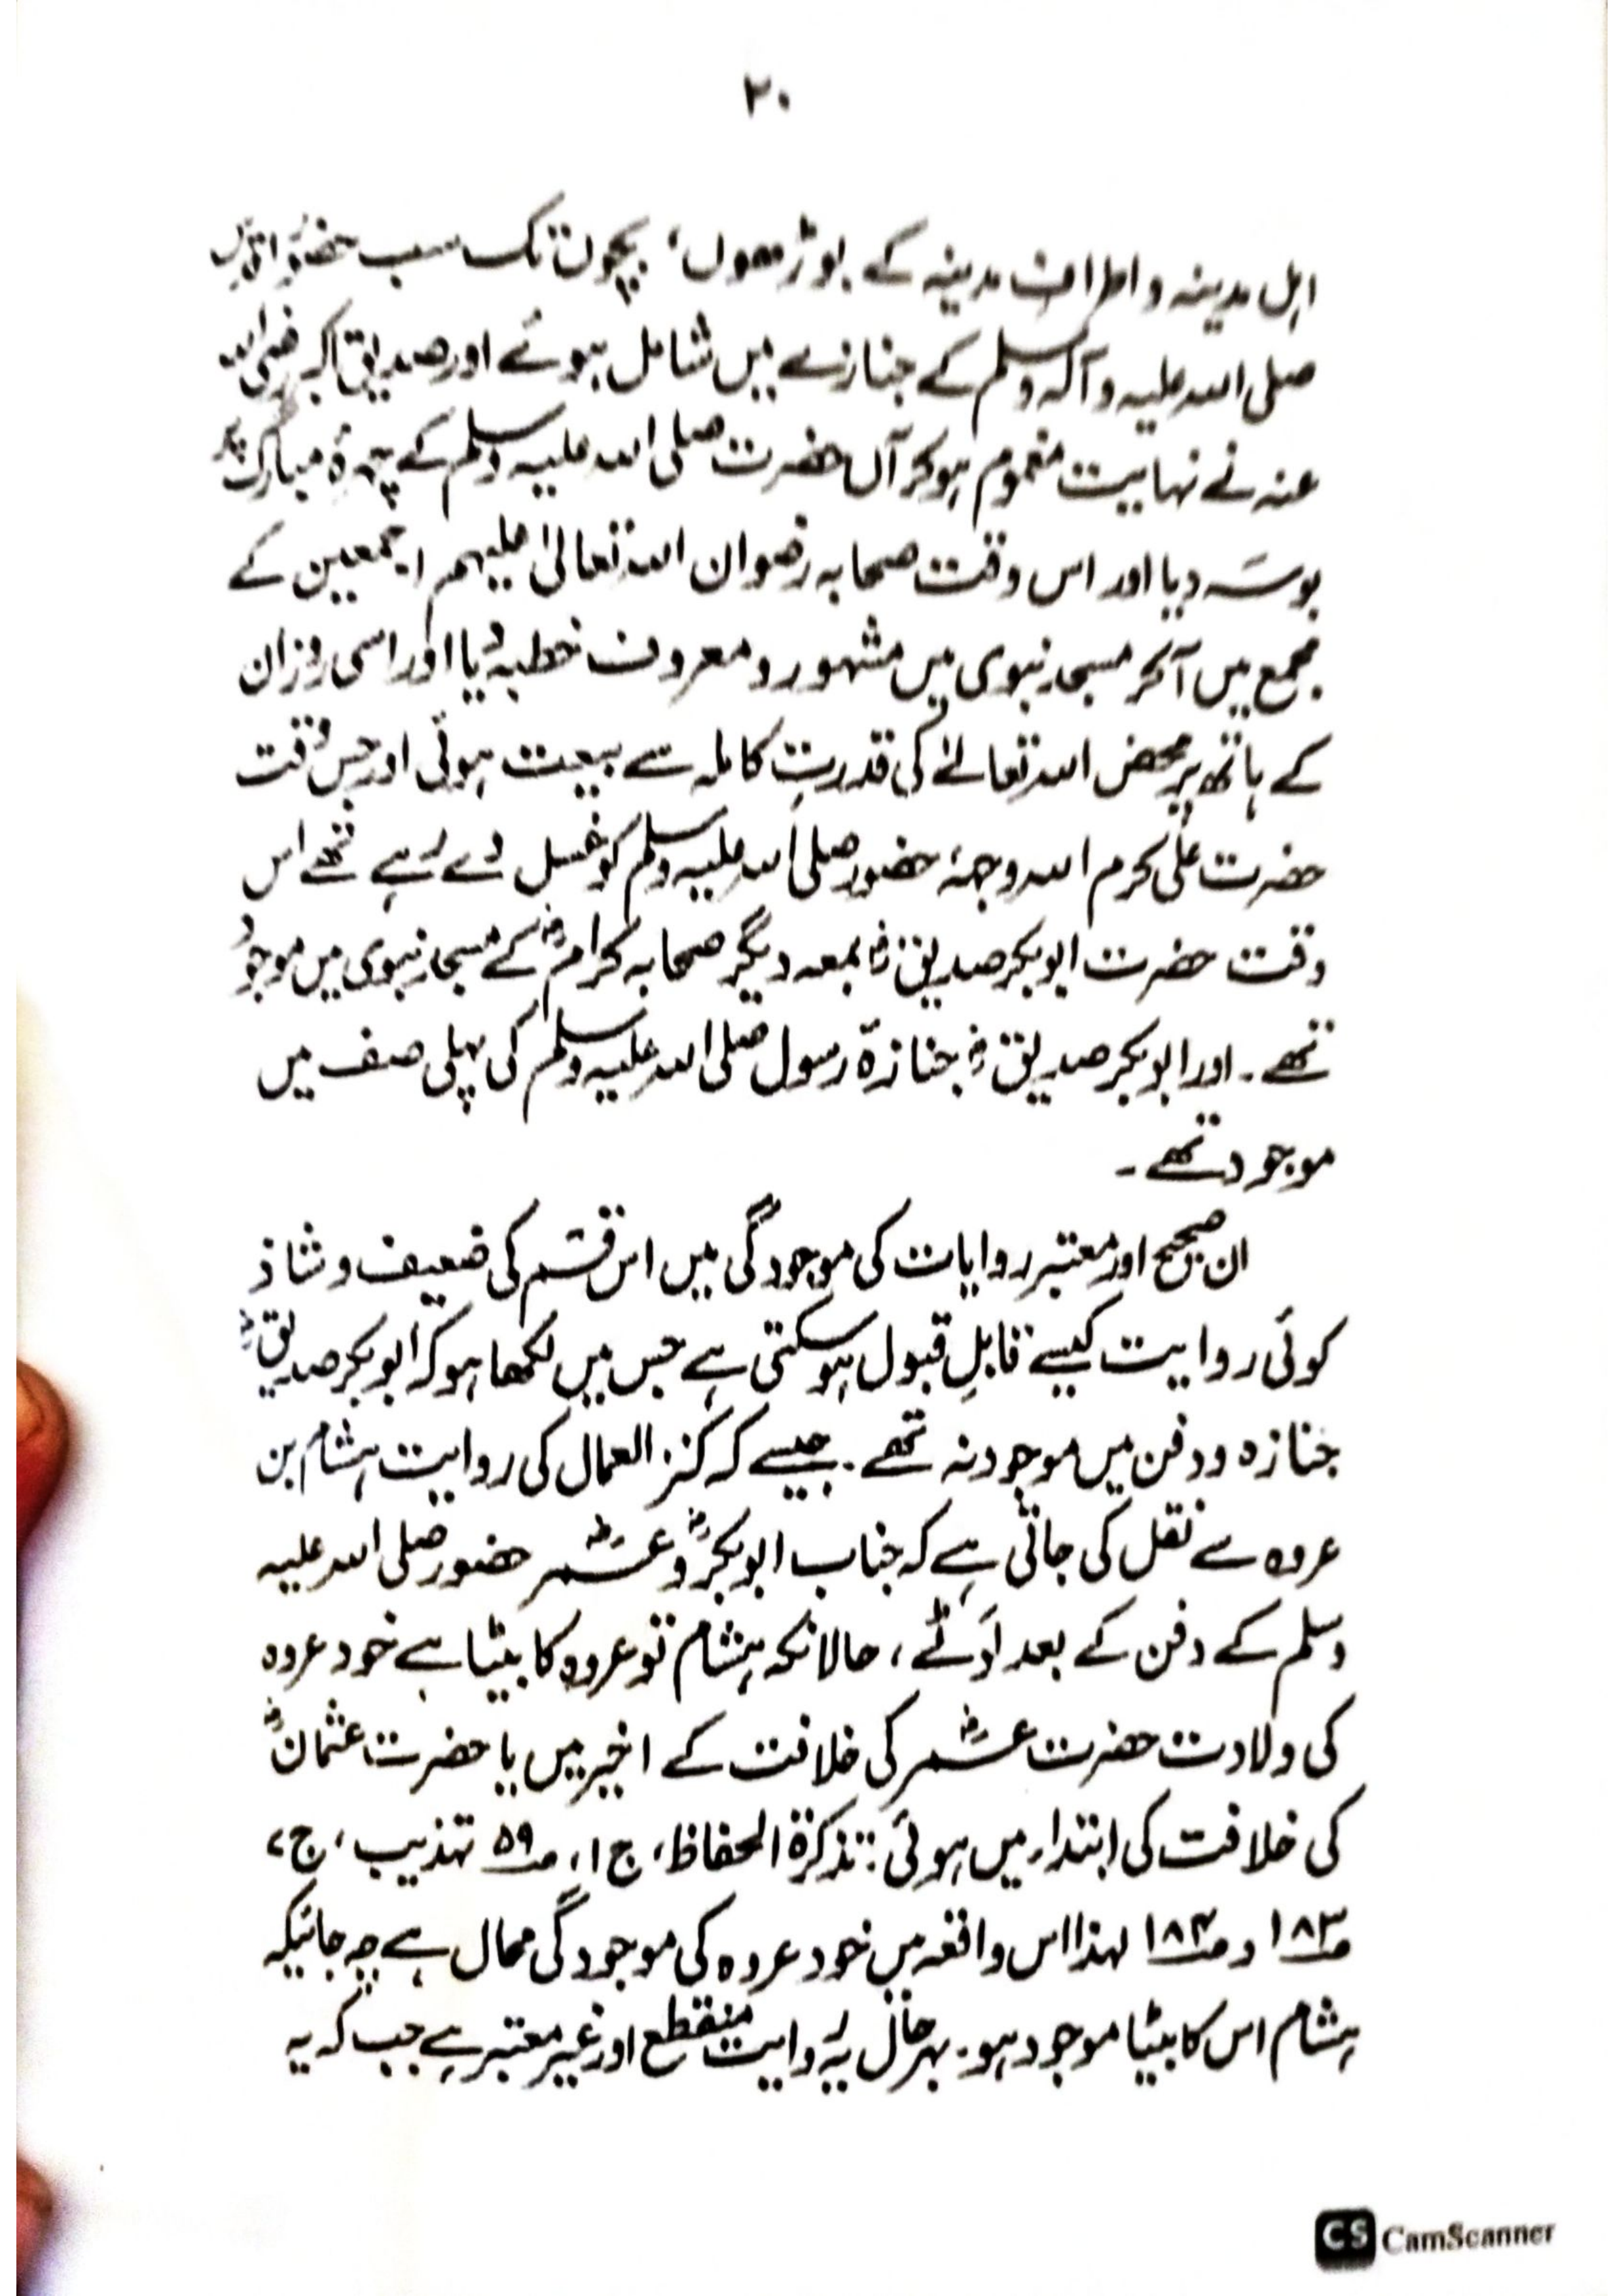 ۲۰
اہل مدینہ و اطراف مدینہ کے بوڑھوں، بچوں تک سب حضورِ اقدس
صلی اللہ علیہ وآلہ وسلم کے جنازے میں شامل ہوئے اور صدیق اکبر رضی اللہ
عنہ نے نہایت مغموم ہوکر آں حضرت صلی اللہ علیہ وسلم کے چہرۂ مبارک پر
بوسہ دیا اور اس وقت صحابہ رضوان اللہ تعالیٰ علیہم اجمعین کے
مجمع میں آکر مسجد نبوی میں مشہور و معروف خطبہ دیا اور اسی روز ان
کے ہاتھ پر محض اللہ تعالےٰ کی قدرتِ کاملہ سے بیعت ہوئی اور جس وقت
حضرت علی کرم اللہ وجہہٗ حضور صلی اللہ علیہ وسلم کو غسل دے رہے تھے اس
وقت حضرت ابوبکر صدیقؓ بمعہ دیگر صحابہ کرامؓ کے مسجد نبوی میں موجود
تھے۔ اور ابوبکر صدیقؓ جنازۂ رسول صلی اللہ علیہ وسلم کی پہلی صف میں
موجود تھے۔
ان صحیح اور معتبر روایات کی موجودگی میں اس قسم کی ضعیف و شاذ
کوئی روایت کیسے قابلِ قبول ہوسکتی ہے جس میں لکھا ہو کہ ابوبکر صدیقؓ
جنازہ و دفن میں موجود نہ تھے۔ جیسے کہ کنز العمال کی روایت ہشام بن
عروہ سے نقل کی جاتی ہے کہ جناب ابوبکرؓ و عمرؓ حضور صلی اللہ علیہ
وسلم کے دفن کے بعد لوٹے، حالانکہ ہشام تو عروہ کا بیٹا ہے خود عروہ
کی ولادت حضرت عمرؓ کی خلافت کے اخیر میں یا حضرت عثمانؓ
کی خلافت کی ابتداء میں ہوئی: تذکرۃ الحفاظ، ج ۱، صـ ۵۹ تہذیب، ج ۷
صـ ۱۸۳ و صـ ۱۸۴ لہذا اس واقعہ میں خود عروہ کی موجودگی محال ہے چہ جائیکہ
ہشام اس کا بیٹا موجود ہو۔ بہرحال یہ روایت منقطع اور غیر معتبر ہے جب کہ یہ
CS CamScanner